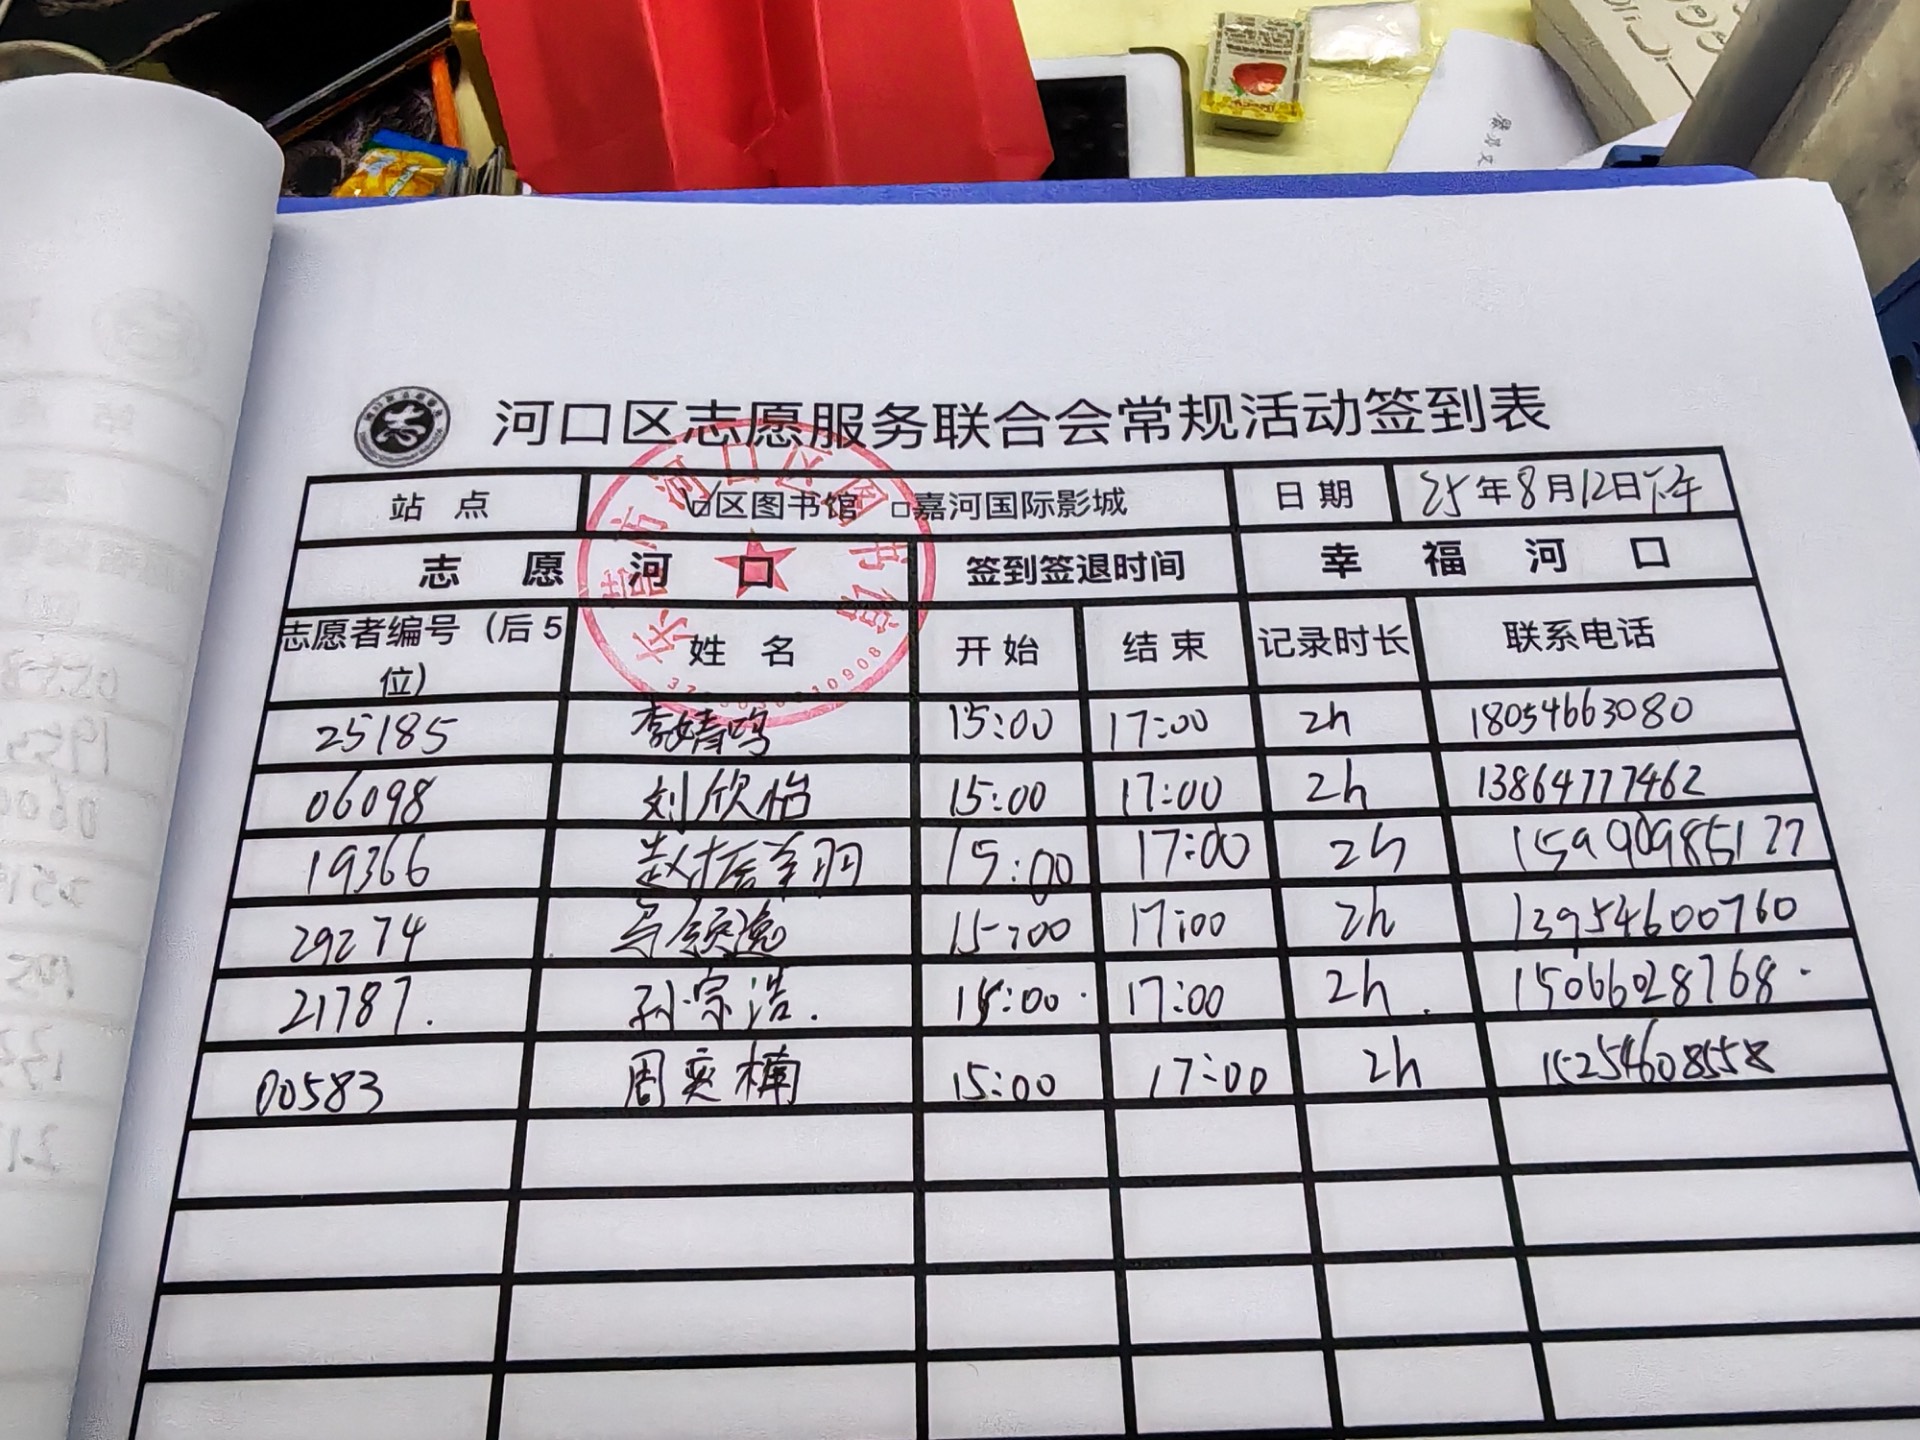 河口区志愿服务联合会常规活动签到表
站 点 ☑区图书馆 □嘉河国际影城 日期 25年8月12日下午
志 愿 河 口 签到签退时间 幸 福 河 口
志愿者编号（后5位） 姓 名 开始 结束 记录时长 联系电话
25185 李婧鸣 15:00 17:00 2h 18054663080
06098 刘欣怡 15:00 17:00 2h 13864777462
19366 15:00 17:00 2h 15990985127
29274 15:00 17:00 2h 13954600760
21787. 孙宗浩. 15:00 17:00 2h. 15066028768
00583 周奕楠 15:00 17:00 2h 15254608558